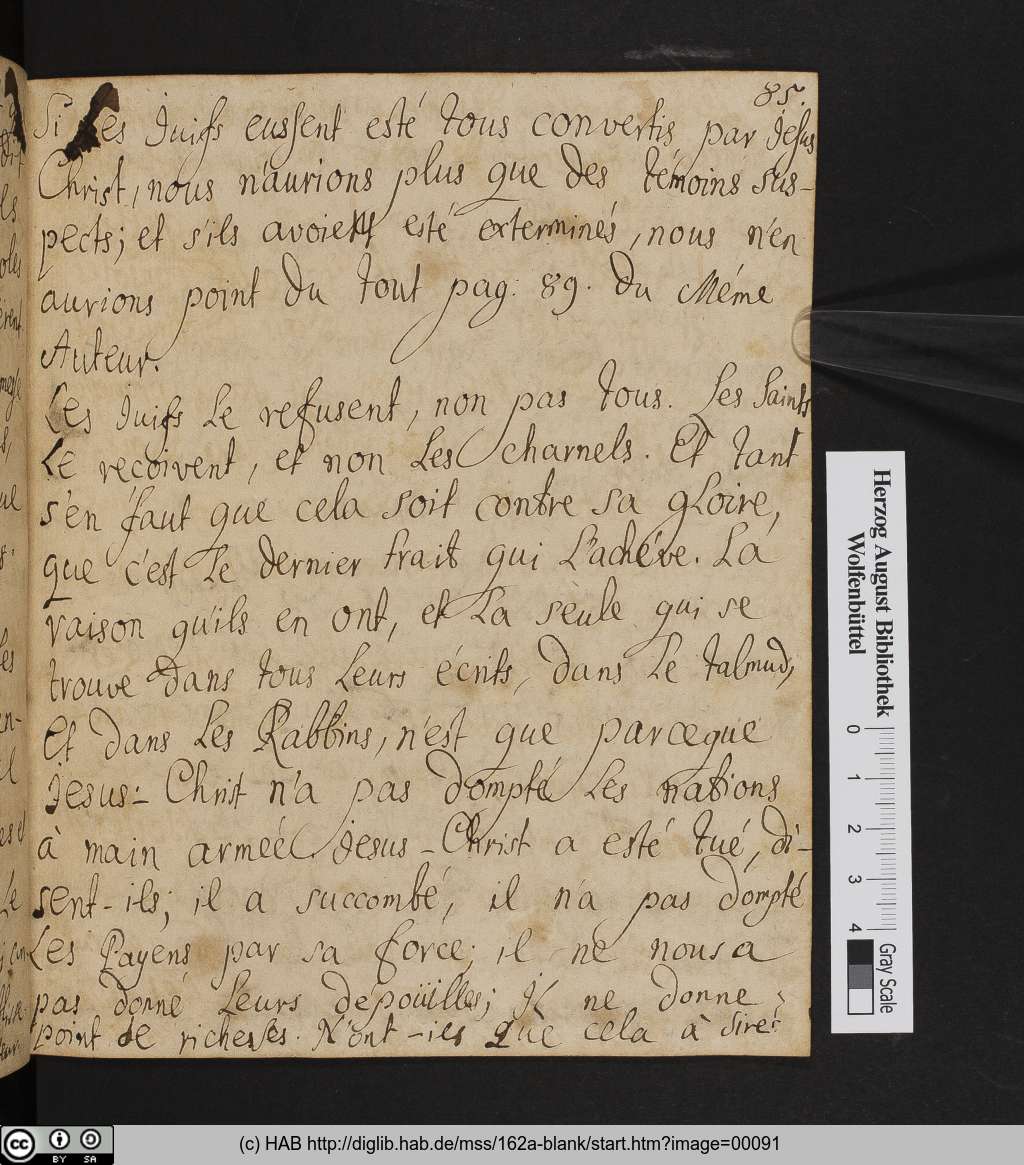 85.
Si Les Juifs eussent esté tous convertis par Jesus
Christ, nous n'aurions plus que des témoins sus-
pects; et s'ils avoient esté exterminés, nous n'en
aurions point du tout pag: 89. du Méme
Auteur.
Les Juifs Le refusent, non pas tous. Les Saints
Le reçoivent, et non Les charnels. Et tant
s'en faut que cela soit contre sa gLoire,
que c'est Le dernier trait qui L'achéve. La
raison qu'ils en ont, et La seule qui se
trouve dans tous Leurs écrits, dans Le talmud,
Et dans Les Rabbins, n'est que parceque
Jesus-Christ n'a pas dompté Les nations
à main armée. Jesus-Christ a esté tué, di-
sent-ils; il a succombé, il n'a pas dompté
Les Payens par sa force; il ne nous a
pas donné Leurs dépoüilles; Il ne donne
point de richesses. N'ont-ils que cela à dire?
Herzog August Bibliothek
Wolfenbüttel
0 1 2 3 4
Gray Scale
cc BY SA
(c) HAB http://diglib.hab.de/mss/162a-blank/start.htm?image=00091